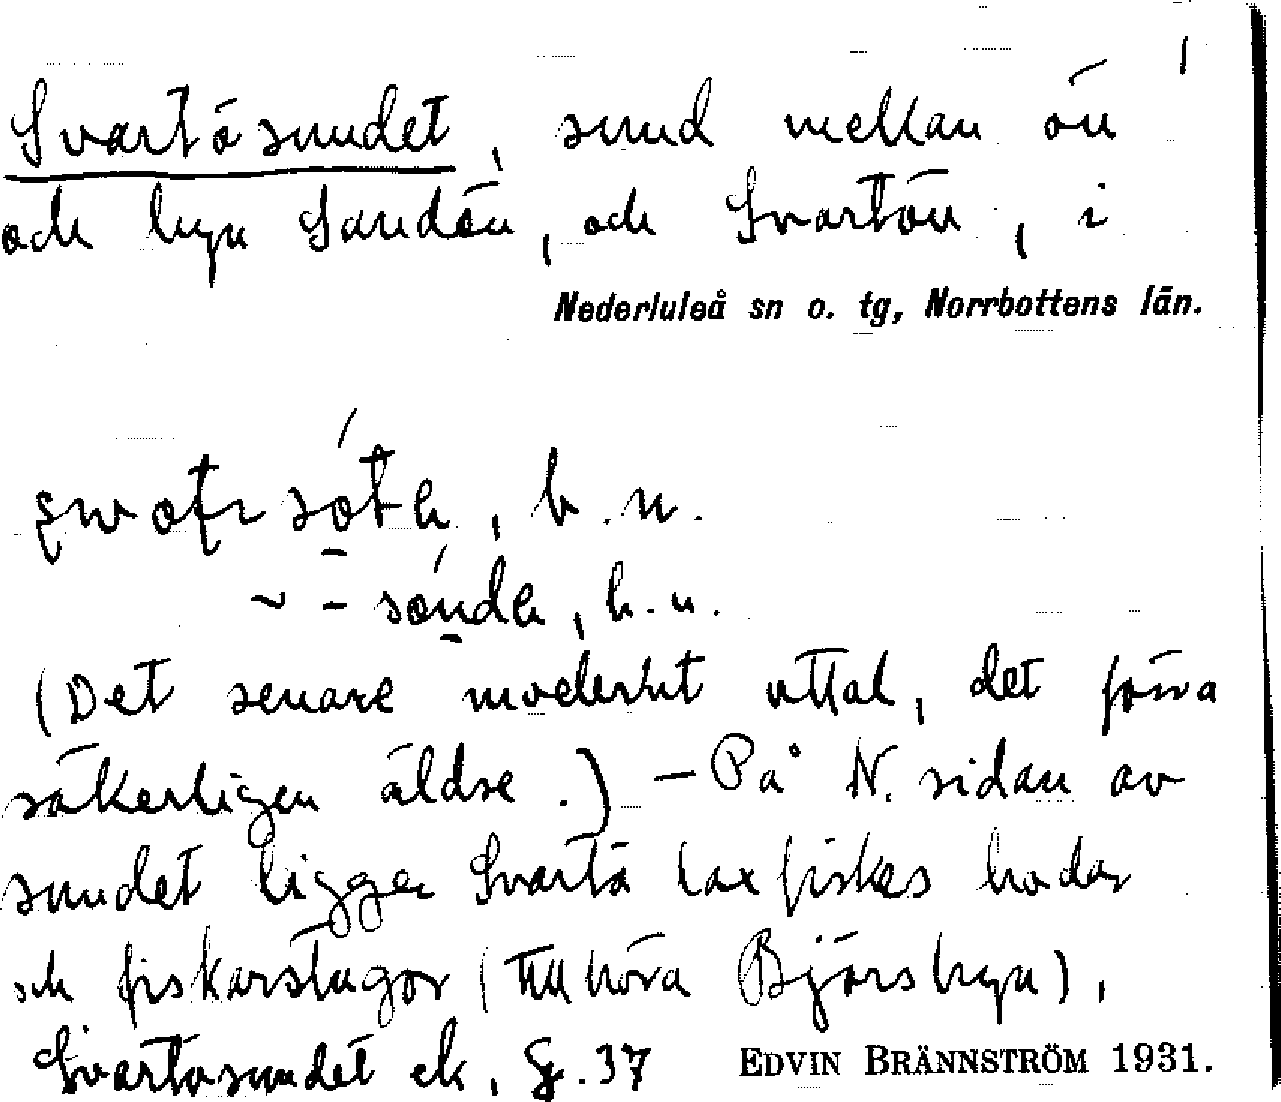 Svartösundet, sund mellan ön
och byn Sandön, och Svartön, i
Nederluleå sn o. tg, Norrbottens län.
b.n.
b.n.
(Det senare modernt uttal, det förra
säkerligen äldre.) — På N. sidan av
sundet ligger Svartö laxfiskes bodar
och fiskarstugor (tillhöra Björsbyn),
Svartösundet ek. 37
EDVIN BRÄNNSTRÖM 1931.